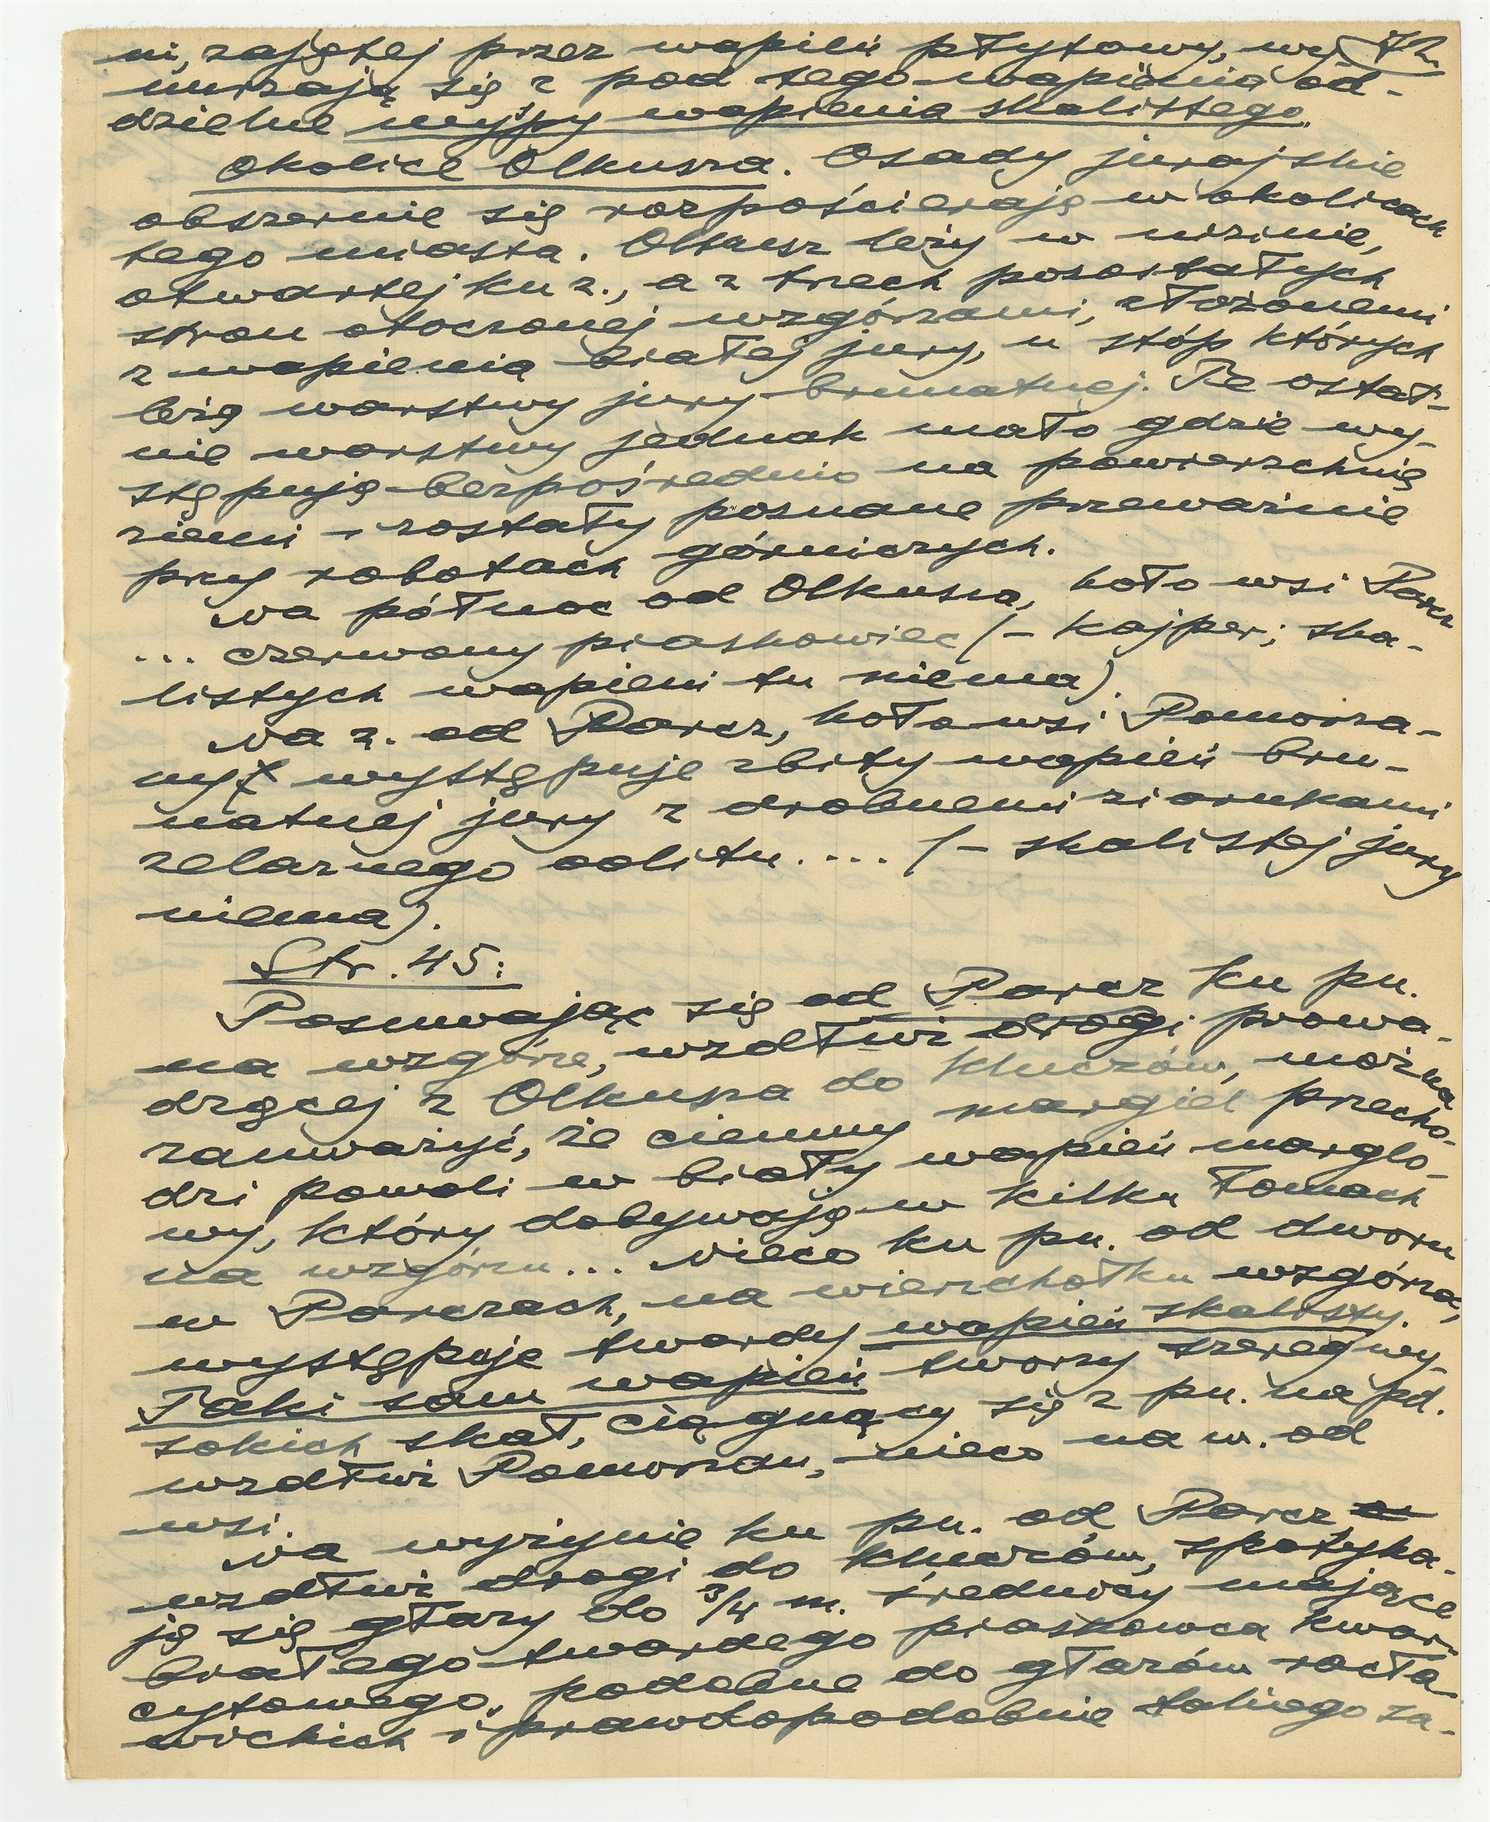 ni, zajętej przez wapień płytowy, wy-
nurzają się z pod tego wapienia od-
dzielne wyspy wapienia skalistego.
Okolice Olkusza. Osady jurajskie
obszernie się rozpościerają w okolicach
tego miasta. Olkusz leży w nizinie,
otwartej ku z., a z trzech pozostałych
stron otoczonej wzgórzami, złożonemi
z wapienia białej jury, u stóp których
leżą warstwy jury brunatnej. Te ostat-
nie warstwy jednak mało gdzie wy-
stępują bezpośrednio na powierzchnię
ziemi i zostały poznane przeważnie
przy robotach górniczych.
Na północ od Olkusza, koło wsi Parcz
... czerwony piaskowiec (- kajper; ska-
listych wapieni tu niema).
Na z. od Parcz, koło wsi Pomorza-
ny wystę puje zbity wapień bru-
natnej jury z drobnemi ziarnkami
żelaznego oolitu.... (- skalistej jury
niema).
Str. 45:
Posuwając się od Parcz ku pn.
na wzgórze, wzdłuż drogi prowa-
dzącej z Olkusza do Kluczów, można
zauważyć, że ciemny margiel przecho-
dzi powoli w biały wapień marglo-
wy, który dobywają w kilku łomach
na wzgórzu... Nieco ku pn. od dworu
w Parczach, na wierzchołku wzgórza,
występuje twardy wapień skalisty.
Taki sam wapień tworzy szereg wy-
sokich skał, ciągnący się z pn. na pd.
wzdłuż Pomorzan, nieco na w. od
wsi.
Na wyżynie ku pn. od Parcz
wzdłuż drogi do Kluczów, spotyka-
ją się głazy do 3/4 m. średnicy mające
białego twardego piaskowca kwar-
cytowego, podobne do głazów racła-
wickich i prawdopodobnie takiego za-